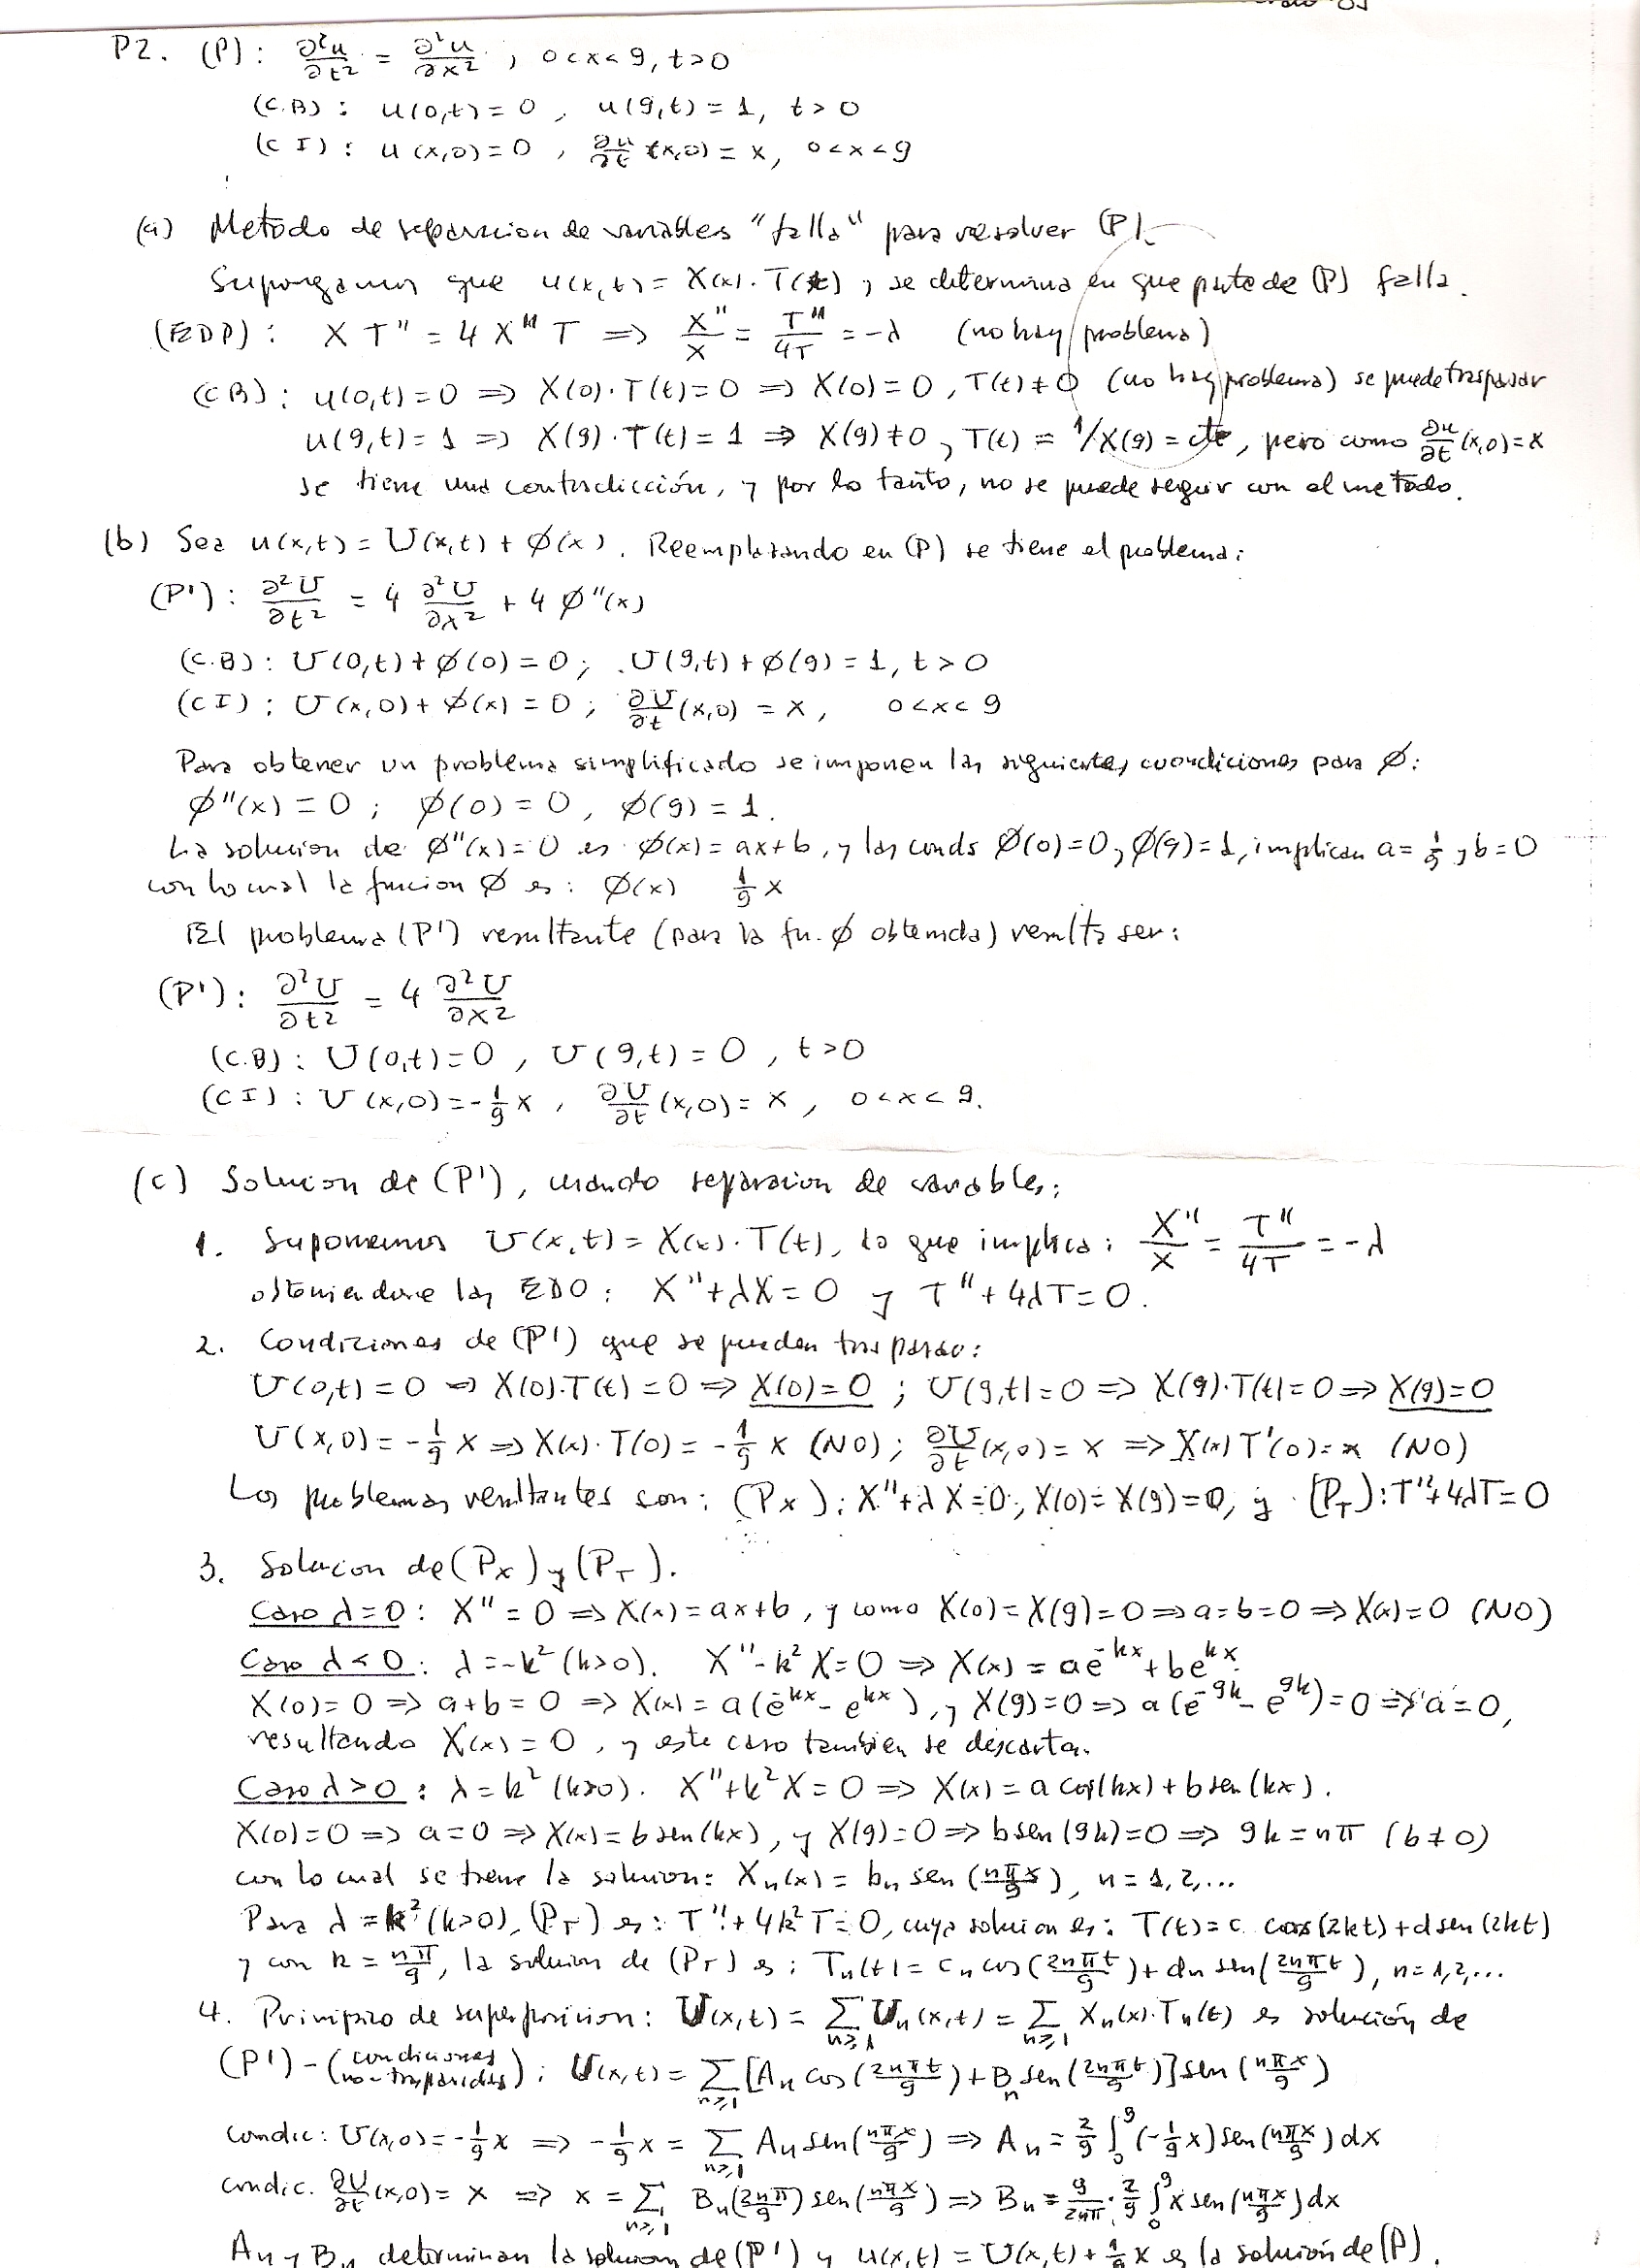 P2. (P): ∂²u/∂t² = ∂²u/∂x² , 0<x<9, t>0
(C.B): u(0,t)=0 , u(9,t)=1, t>0
(CI): u(x,0)=0 , ∂u/∂t (x,0)=x, 0<x<9
(a) Metodo de separacion de variables "falla" para resolver (P).
Supongamos que u(x,t)=X(x).T(t) y se determina en que parte de (P) falla.
(EDP): X T'' = 4 X'' T => X''/X = T''/4T = -λ (no hay problema)
(CB): u(0,t)=0 => X(0).T(t)=0 => X(0)=0, T(t)≠0 (no hay problema) se puede traspasar
u(9,t)=1 => X(9).T(t)=1 => X(9)≠0, T(t)=1/X(9)=cte, pero como ∂u/∂t (x,0)=x
se tiene una contradicción, y por lo tanto, no se puede seguir con el metodo.
(b) Sea u(x,t)=U(x,t)+Ø(x). Reemplazando en (P) se tiene el problema:
(P'): ∂²U/∂t² = 4 ∂²U/∂x² + 4 Ø''(x)
(C.B): U(0,t)+Ø(0)=0; U(9,t)+Ø(9)=1, t>0
(CI): U(x,0)+Ø(x)=0; ∂U/∂t (x,0)=x, 0<x<9
Para obtener un problema simplificado se imponen las siguientes condiciones para Ø:
Ø''(x)=0; Ø(0)=0, Ø(9)=1.
La solucion de Ø''(x)=0 es Ø(x)=ax+b, y las conds Ø(0)=0, Ø(9)=1, implican a=1/9 y b=0
con lo cual la funcion Ø es: Ø(x) 1/9 x
El problema (P') resultante (para la fn. Ø obtenida) resulta ser:
(P'): ∂²U/∂t² = 4 ∂²U/∂x²
(C.B): U(0,t)=0, U(9,t)=0, t>0
(CI): U(x,0)=-1/9 x, ∂U/∂t (x,0)=x, 0<x<9.
(c) Solucion de (P'), usando separacion de variables:
1. Suponemos U(x,t)=X(x).T(t), lo que implica: X''/X = T''/4T = -λ
obteniendose las EDO: X''+λX=0 y T''+4λT=0.
2. Condiciones de (P') que se pueden traspasar:
U(0,t)=0 => X(0).T(t)=0 => X(0)=0; U(9,t)=0 => X(9).T(t)=0 => X(9)=0
U(x,0)=-1/9 x => X(x).T(0)=-1/9 x (NO); ∂U/∂t (x,0)=x => X(x)T'(0)=x (NO)
Los problemas resultantes son: (Px): X''+λX=0, X(0)=X(9)=0, y (PT): T''+4λT=0
3. Solucion de (Px) y (PT).
Caso λ=0: X''=0 => X(x)=ax+b, y como X(0)=X(9)=0 => a=b=0 => X(x)=0 (NO)
Caso λ<0: λ=-k² (k>0). X''-k²X=0 => X(x)=ae^-kx+be^kx.
X(0)=0 => a+b=0 => X(x)=a(e^-kx-e^kx), y X(9)=0 => a(e^-9k-e^9k)=0 => a=0,
resultando X(x)=0, y este caso tambien se descarta.
Caso λ>0: λ=k² (k>0). X''+k²X=0 => X(x)=a cos(kx)+b sen(kx).
X(0)=0 => a=0 => X(x)=b sen(kx), y X(9)=0 => b sen(9k)=0 => 9k=nπ (b≠0)
con lo cual se tiene la solucion: Xn(x)=bn sen(nπx/9), n=1,2,...
Para λ=k² (k>0), (PT) es: T''+4k²T=0, cuya solucion es: T(t)=c cos(2kt)+d sen(2kt)
y con k=nπ/9, la solucion de (PT) es: Tn(t)=cn cos(2nπt/9)+dn sen(2nπt/9), n=1,2,...
4. Principio de superposicion: U(x,t)=Σn≥1 Un(x,t)=Σn≥1 Xn(x).Tn(t) es solución de
(P')-(condiciones no-traspasadas): U(x,t)=Σn≥1 [An cos(2nπt/9)+Bn sen(2nπt/9)] sen(nπx/9)
condic: U(x,0)=-1/9 x => -1/9 x=Σn≥1 An sen(nπx/9) => An=2/9 ∫₀⁹ (-1/9 x) sen(nπx/9) dx
condic. ∂U/∂t (x,0)=x => x=Σn≥1 Bn(2nπ/9) sen(nπx/9) => Bn=9/2nπ . 2/9 ∫₀⁹ x sen(nπx/9) dx
An y Bn determinan la solucion de (P') y u(x,t)=U(x,t)+1/9 x es la solución de (P).